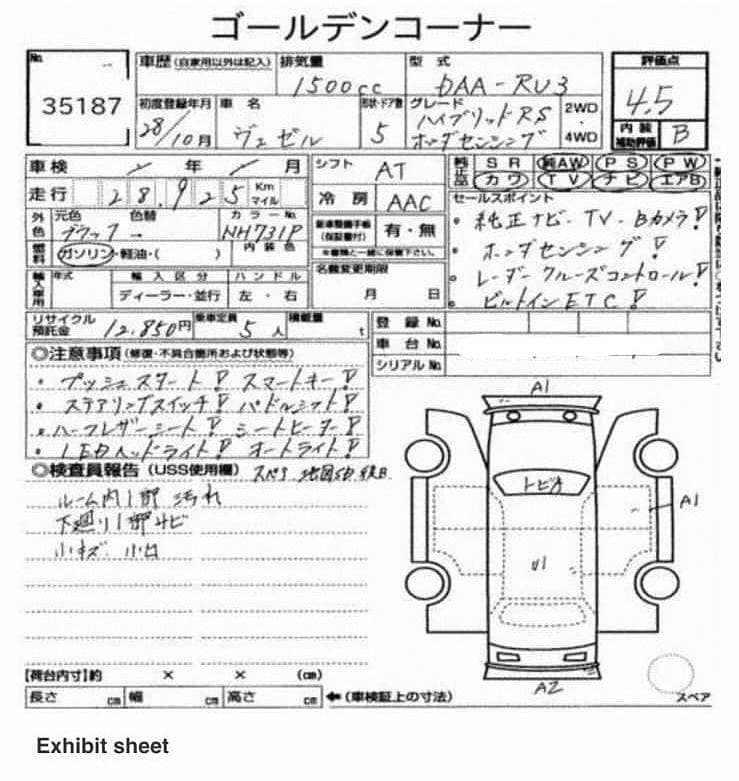 ゴールデンコーナー
No.
35187
車歴 (自家用以外は記入)
排気量
1500cc
型式
DAA-RU3
評価点
4.5
内装
補助評価
B
初度登録年月
28/10月
車名
ヴェゼル
形状・ドア数
5
グレード
ハイブリッドRS
ホンダセンシング
2WD
・
4WD
車検 年 月
走行 28.925 Km
マイル
シフト
AT
冷房
AAC
純正品
SR 純AW PS PW
カワ TV ナビ エアB
セールスポイント
・純正ナビ・TV・Bカメラ!
・ホンダセンシング!
・レーダークルーズコントロール!
・ビルトインETC!
外色
元色 色替
ブラック→
カラーNo.
NH731P
内装色
燃料
ガソリン・軽油・( )
(保証書付)
有・無
名義変更期限
月 日
輸入車用
年式
輸入区分
ディーラー・並行
ハンドル
左・右
リサイクル
預託金
12,850円
乗車定員
5人
積載量
t
登録No.
車台No.
シリアルNo.
◎注意事項(修復・不具合箇所および状態等)
・プッシュスタート! スマートキー!
・ステアリングスイッチ! パドルシフト!
・ハーフレザーシート! シートヒーター!
・LEDヘッドライト! オートライト!
◎検査員報告(USS使用欄)
ルーム内1部汚れ
下廻り1部サビ
小キズ 小凹
A1
トビA
A1
U1
A2
スペア
【荷台内寸】約 × × (cm)
長さ cm 幅 cm 高さ cm
←(車検証上の寸法)
Exhibit sheet